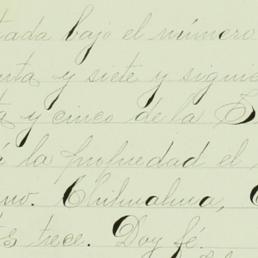 tada bajo el número
nta y siete y siguie
ta y cinco de la
la propiedad el
no. Chihuahua,
s trece. Doy fé.